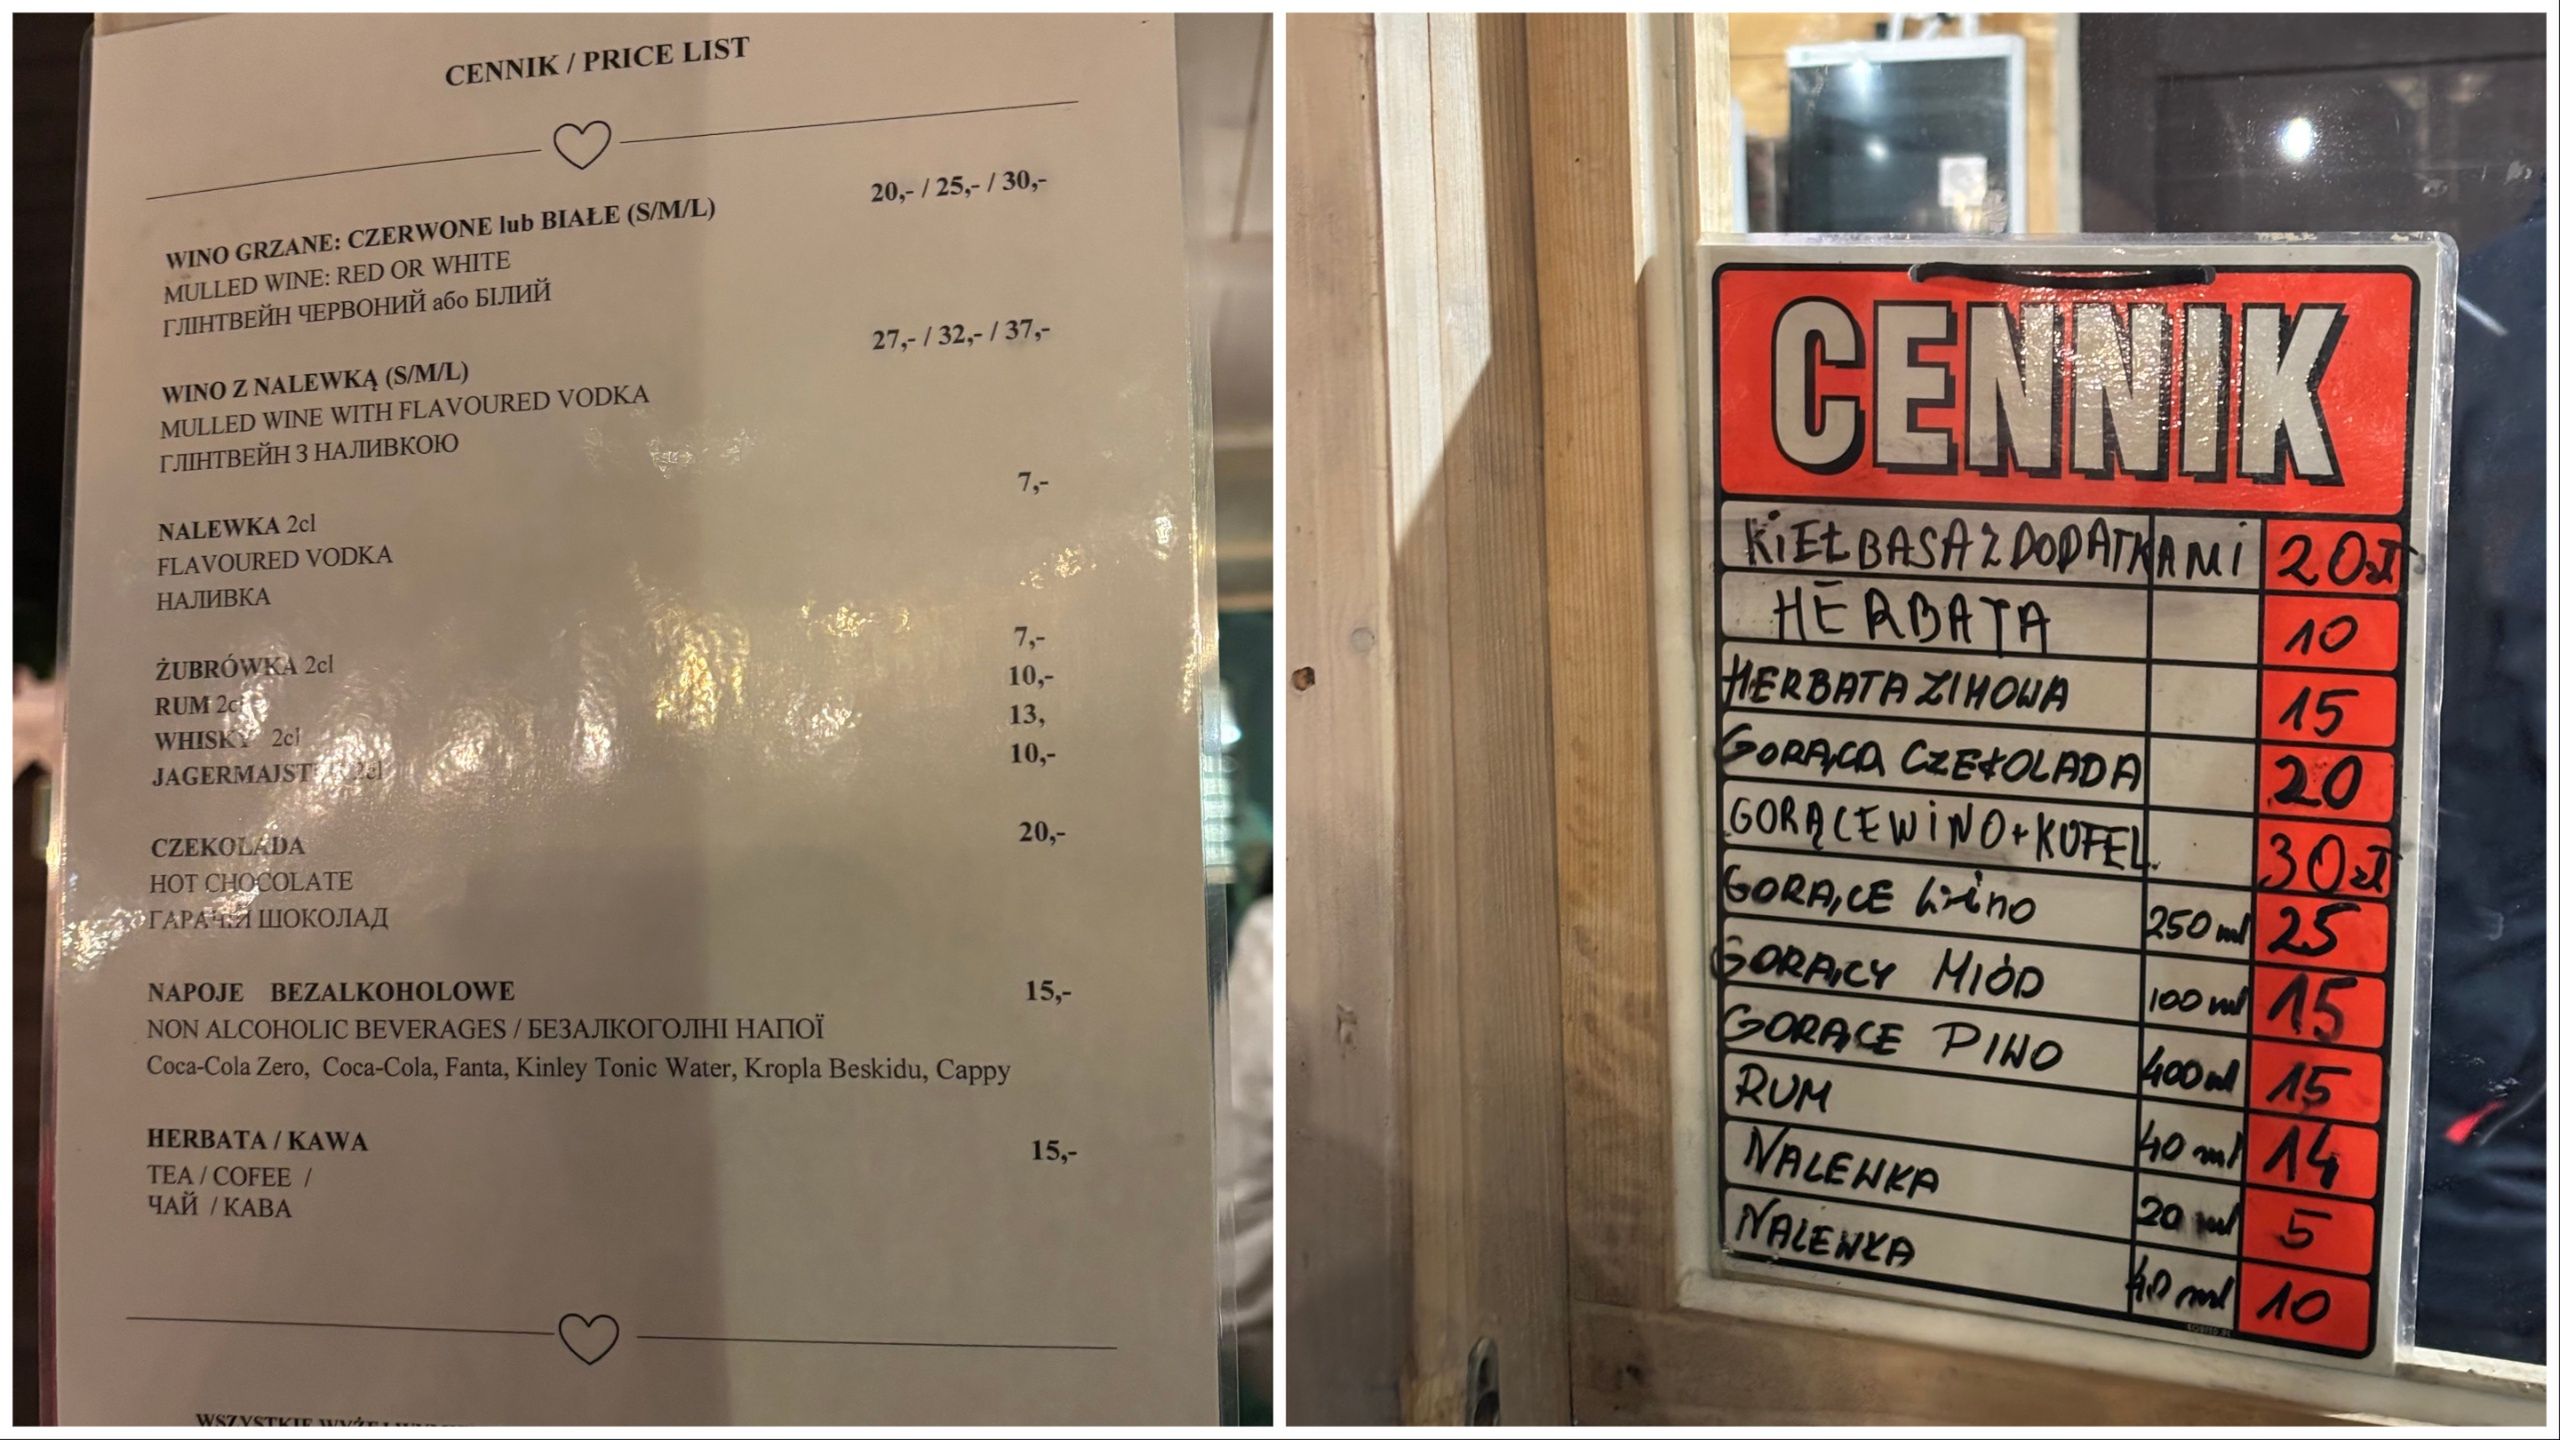 CENNIK / PRICE LIST
WINO GRZANE: CZERWONE lub BIAŁE (S/M/L) 20,- / 25,- / 30,-
MULLED WINE: RED OR WHITE
ГЛІНТВЕЙН ЧЕРВОНИЙ або БІЛИЙ
WINO Z NALEWKĄ (S/M/L) 27,- / 32,- / 37,-
MULLED WINE WITH FLAVOURED VODKA
ГЛІНТВЕЙН З НАЛИВКОЮ
NALEWKA 2cl 7,-
FLAVOURED VODKA
НАЛИВКА
ŻUBRÓWKA 2cl 7,-
RUM 2cl 10,-
WHISKY 2cl 13,
2cl 10,-
CZEKOLADA 20,-
HOT CHOCOLATE
ГАРАЧИЙ ШОКОЛАД
NAPOJE BEZALKOHOLOWE 15,-
NON ALCOHOLIC BEVERAGES / БЕЗАЛКОГОЛНІ НАПОЇ
Coca-Cola Zero, Coca-Cola, Fanta, Kinley Tonic Water, Kropla Beskidu, Cappy
HERBATA / KAWA 15,-
TEA / COFEE /
ЧАЙ / КАВА
CENNIK
KIEŁBASA Z DODATKAMI 20zł
HERBATA 10
HERBATA ZIMOWA 15
GORĄCA CZEKOLADA 20
GORĄCE WINO + KUFEL 30zł
GORĄCE Wino 250 ml 25
GORĄCY MIÓD 100 ml 15
GORĄCE PIWO 400 ml 15
RUM 40 ml 14
NALEWKA 20 ml 5
NALEWKA 40 ml 10